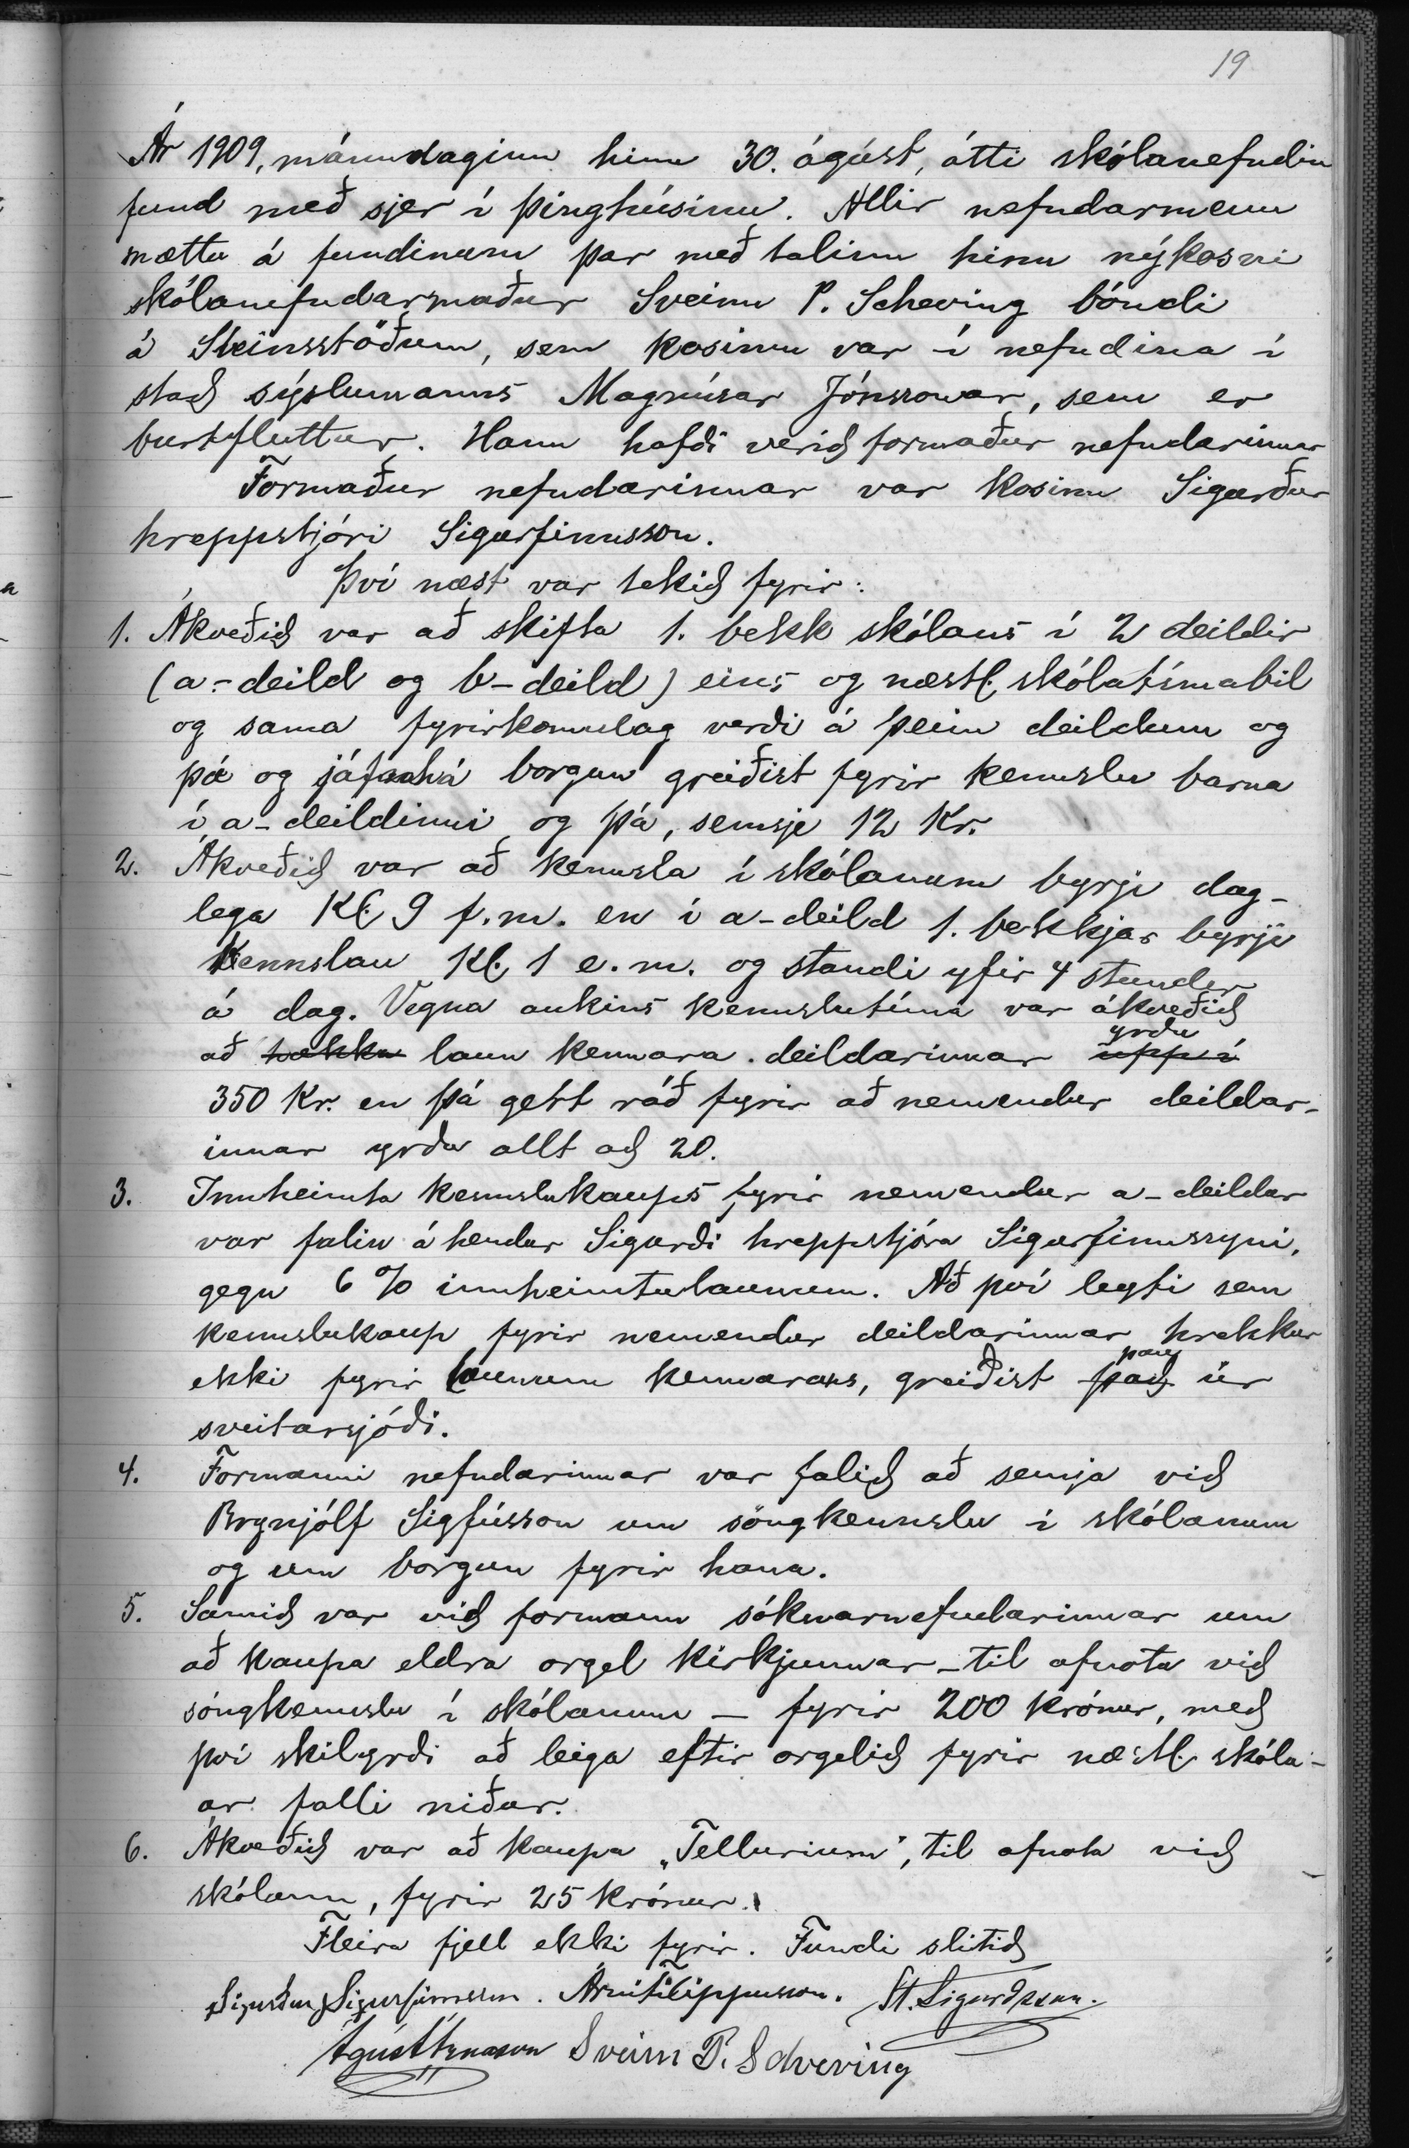 19
Ár 1909, mánudaginn hinn 30. ágúst, átti skólanefndin
fund með sjer í þinghúsinu. Allir nefndarmenn
mættu á fundinum þar með talinn hinn nýkosni
skólanefndarmaður Sveinn P. Scheving bóndi
á Steinsstöðum, sem kosinn var í nefndina í
stað sýslumanns Magnúsar Jónssonar, sem er
burtfluttur. Hann hafði verið formaður nefndarinnar
Formaður nefndarinnar var kosinn Sigurður
hreppstjóri Sigurfinnsson.
Því næst var tekið fyrir:
1. Ákveðið var að skifta 1. bekk skólans í 2 deildir
(a-deild og b-deild) eins og næstl. skólatímabil
og sama fyrirkomulag verði á þeim deildum og
þá og jafnhá borgun greiðist fyrir kennslu barna
í a-deildinni og þá, semsje 12 Kr.
2. Ákveðið var að kennsla í skólanum byrji dag-
lega Kl. 9 f.m. en í a-deild 1. bekkjar byrji
Kennslan Kl. 1 e.m. og standi yfir 4 stundir
á dag. Vegna aukins kennslutíma var ákveðið
að hækka laun kennara deildarinnar upp í yrðu
350 Kr. en þá gert ráð fyrir að nemendur deildar-
innar yrðu allt að 20.
3. Innheimta kennslukaups fyrir nemendur a-deildar
var falin á hendur Sigurði hreppstjóra Sigurfinnssyni,
gegn 6% innheimtulaunum. Að því leyti sem
kennslukaup fyrir nemendur deildarinnar hrekkur
ekki fyrir launum kennarans, greiðist það þau úr
sveitarsjóði.
4. Formanni nefndarinnar var falið að semja við
Brynjólf Sigfússon um söngkennslu í skólanum
og um borgun fyrir hana.
5. Samið var við formann sóknarnefndarinnar um
að kaupa eldra orgel kirkjunnar - til afnota við
söngkennslu í skólanum - fyrir 200 krónur, með
því skilyrði að leiga eftir orgelið fyrir næstl. skóla-
ár falli niður.
6. Ákveðið var að kaupa „Tellurium", til afnota við
skólann, fyrir 25 krónur.
Fleira fjell ekki fyrir. Fundi slitið
Sigurður Sigurfinnsson. Árni Filippusson. St. Sigurðsson.
Ágúst Árnason Sveinn P. Scheving